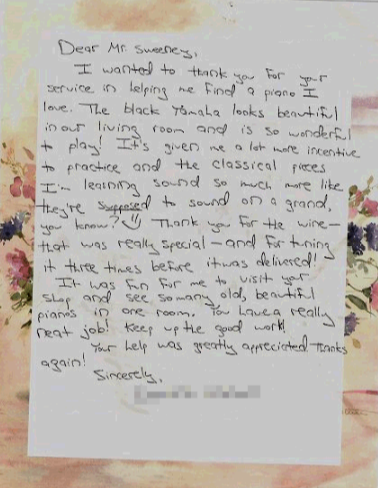 Dear Mr. Sweeney,
I wanted to thank you for your
service in helping me find a piano I
love. The black Yamaha looks beautiful
in our living room and is so wonderful
to play! It's given me a lot more incentive
to practice and the classical pieces
I'm learning sound so much more like
they're supposed to sound on a grand,
you know? Thank you for the wine—
that was really special—and for tuning
it three times before it was delivered!
It was fun for me to visit your
shop and see so many old, beautiful
pianos in one room. You have a really
neat job! Keep up the good work!
Your help was greatly appreciated. Thanks
again!
Sincerely,